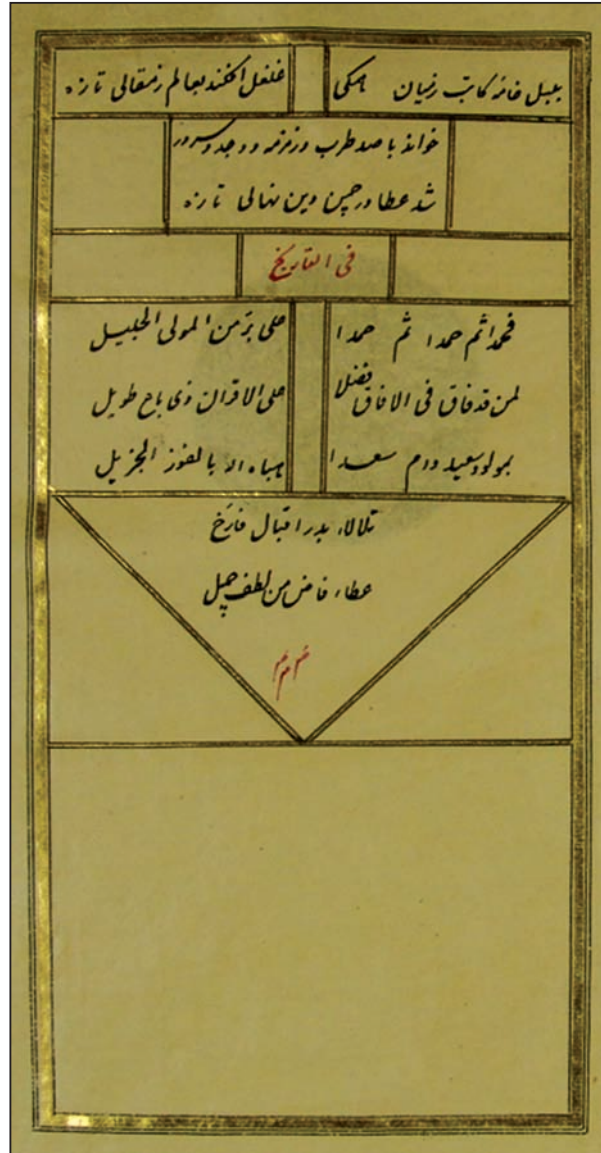 بلبل خامه کاتب زمیان همکی
غلغل افکند بعالم ز مقالی تازه
خواند با صد طرب و زمزمه و وجد و سرور
شد عطا در چمن دین نهالی تازه
فی التاریخ
فحمدا ثم حمدا ثم حمدا
علی بر من المولی الجلیل
لمن قد فاق فی الافاق فضلا
علی الاقران ذی باع طویل
بمولود سعید دام سعدا
حباه الله بالفوز الجزیل
تلالاء بدر اقبال فارخ
عطاء فاض من لطف جمیل